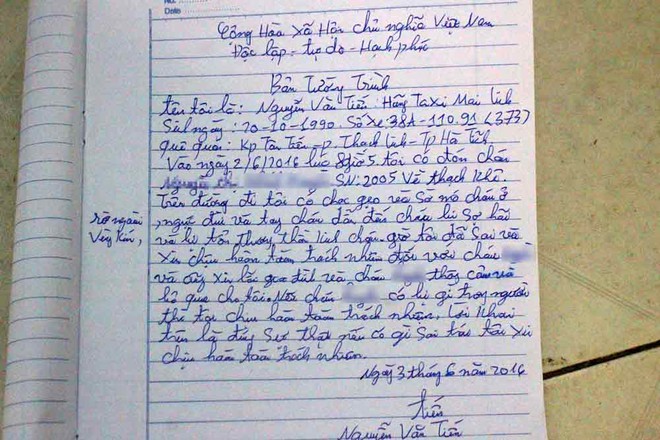 No. :
Date :
Cộng Hòa Xã Hội chủ nghĩa Việt Nam
Độc lập - tự do - Hạnh phúc
Bản Tường Trình
tên tôi là : Nguyễn Văn Tiến Hãng Taxi Mai Linh
Sinh ngày : 20-10-1990. Số Xe: 38A-110.91 (373)
quê quán : Kp Tân Tiến - p. Thạch Linh - Tp Hà Tĩnh
Vào ngày 2/6/2016 lúc 8giờ 5. tôi có đón cháu
Nguyễn th SN: 2005 Về thạch Khê.
Trên đường đi tôi có chọc gẹo và Sờ mó cháu ở
ngực đùi và tay cháu dẫn đến cháu bị Sợ hãi
và bị tổn thương thần kinh chậm, giờ tôi đã Sai và
Xin chịu hoàn toàn trách nhiệm đối với cháu
và cũng xin lỗi gia đình và cháu thông cảm và
bỏ qua cho tôi. Nếu cháu có bị gì trong người
thì tôi chịu hoàn toàn trách nhiệm, lời khai
trên là đúng Sự thật nếu có gì Sai trái tôi Xin
chịu hoàn toàn trách nhiệm.
Ngày 3 tháng 6 năm 2016
tiến
Nguyễn Văn Tiến